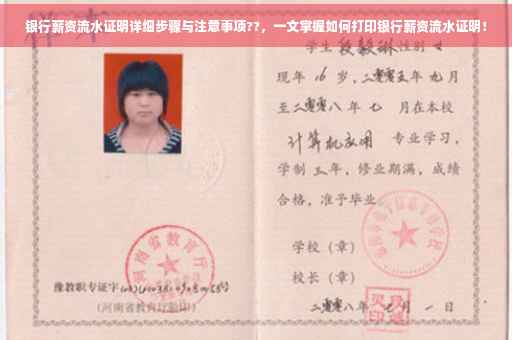 银行薪资流水证明详细步骤与注意事项??，一文掌握如何打印银行薪资流水证明！
学生 性别 女
现年 16 岁，二零零五年 九月
至二零零八年 七 月在本校
计算机应用 专业学习，
学制 三年，修业期满，成绩
合格，准予毕业
学校（章）
校长（章）
二零零八年 七 月 一 日
河南省教育厅
豫教职专证字
（河南省教育厅验印）